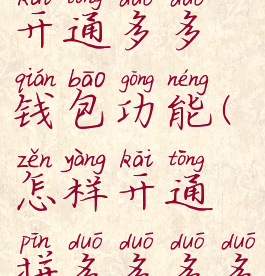 kāi tōng duō duō
开通多多
qián bāo gōng néng
钱包功能(
zěn yàng kāi tōng
怎样开通
pīn duō duō duō duō
拼多多多多